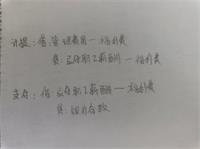 计提：借：管理费用——福利费
贷：应付职工薪酬——福利费
支付：借：应付职工薪酬——福利费
贷：银行存款